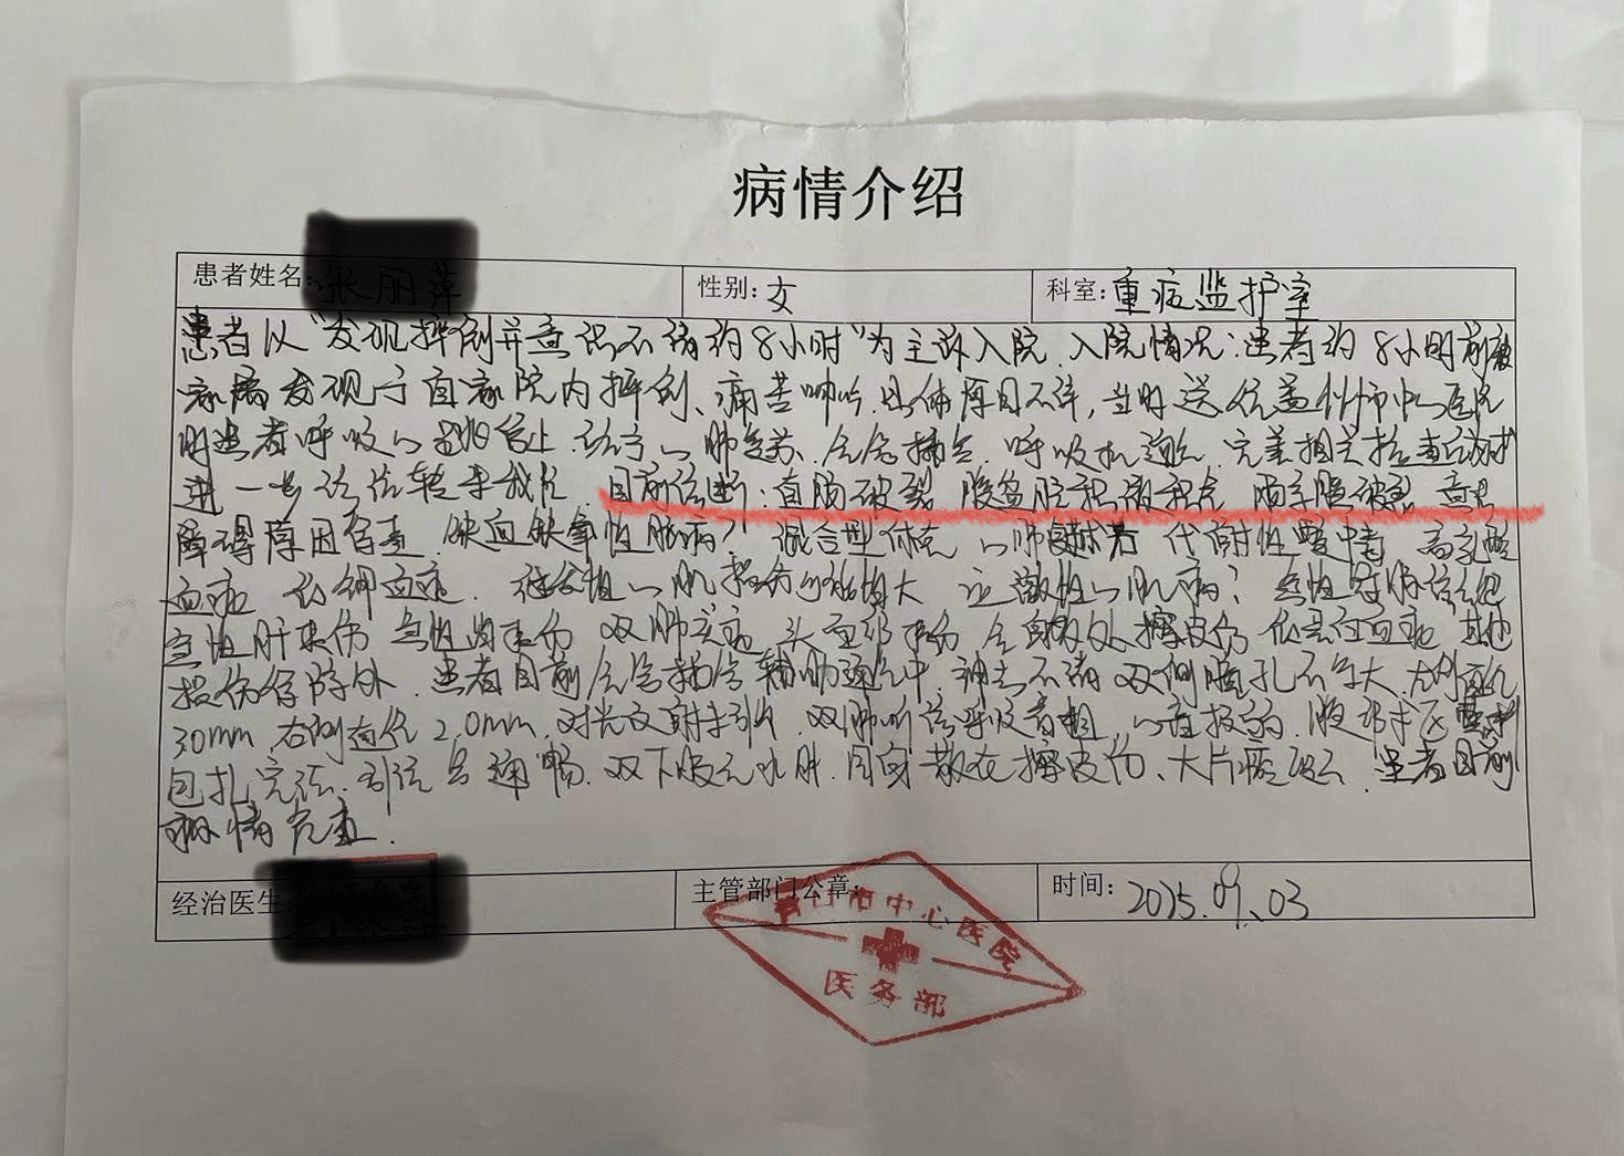 病情介绍
患者姓名: 性别: 女 科室: 重病监护室
患者以"发现摔倒并意识不清约8小时"为主诉入院. 入院情况: 患者约8小时前被
家属发现于自家院内摔倒、痛苦呻吟. 具体原因不详, 当时送住盖州市中心医院
时患者呼吸心跳停止. 给予心肺复苏、气管插管、呼吸机通气. 完善相关检查后为求
进一步诊治转来我院. 目前诊断: 直肠破裂 腹盆腔积液积气 肠系膜破裂 意识
障碍原因待查 缺血缺氧性脑病? 混合型休克 心肺复苏术后 代谢性酸中毒 高乳酸
血症 低钾血症. 继发性心肌损伤 心脏增大 应激性心肌病?
急性肝损伤 急性肾损伤 双肺实变 头面部外伤 全身多处擦皮伤 低蛋白血症 其他
损伤待除外. 患者目前气管插管辅助通气中, 神志不清 双侧瞳孔不等大, 左侧直径
30mm, 右侧直径2.0mm, 对光反射未引出, 双肺听诊呼吸音粗, 腹部术区
包扎完法. 引流管通畅. 双下肢无水肿. 周身散在擦皮伤、大片瘀斑. 患者目前
病情危重.
经治医生: 主管部门公章: 时间: 2025.09.03
市中心医院
医务部